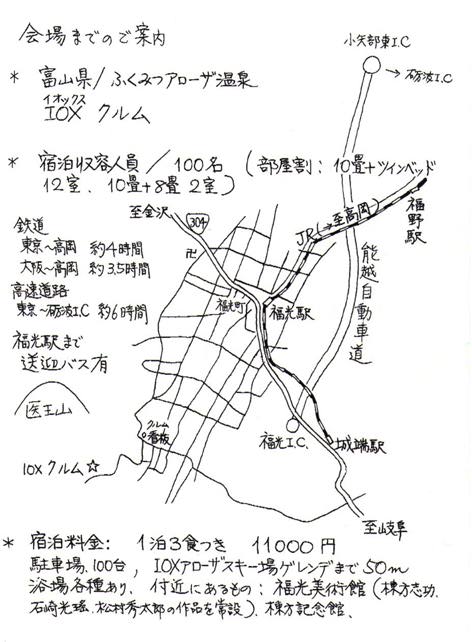 会場までのご案内
小矢部東I.C
→砺波I.C
* 富山県/ふくみつアローザ温泉
イオックス
IOX クルム
* 宿泊収容人員/100名 (部屋割:10畳+ツインベッド
12室、10畳+8畳 2室)
至金沢
304
JR(→至高岡)
福野駅
鉄道
東京〜高岡 約4時間
大阪〜高岡 約3.5時間
高速道路
東京〜砺波I.C 約6時間
福光駅まで
送迎バス有
卍
能越自動車道
福光町
福光駅
医王山
クルム
看板
IOX クルム☆
福光I.C.
城端駅
至山岐阜
* 宿泊料金: 1泊3食つき 11000円
駐車場、100台, IOXアローザスキー場ゲレンデまで50m
浴場各種あり、付近にあるもの:福光美術館(棟方志功、
石崎光瑤、松村秀太郎の作品を常設)、棟方記念館、